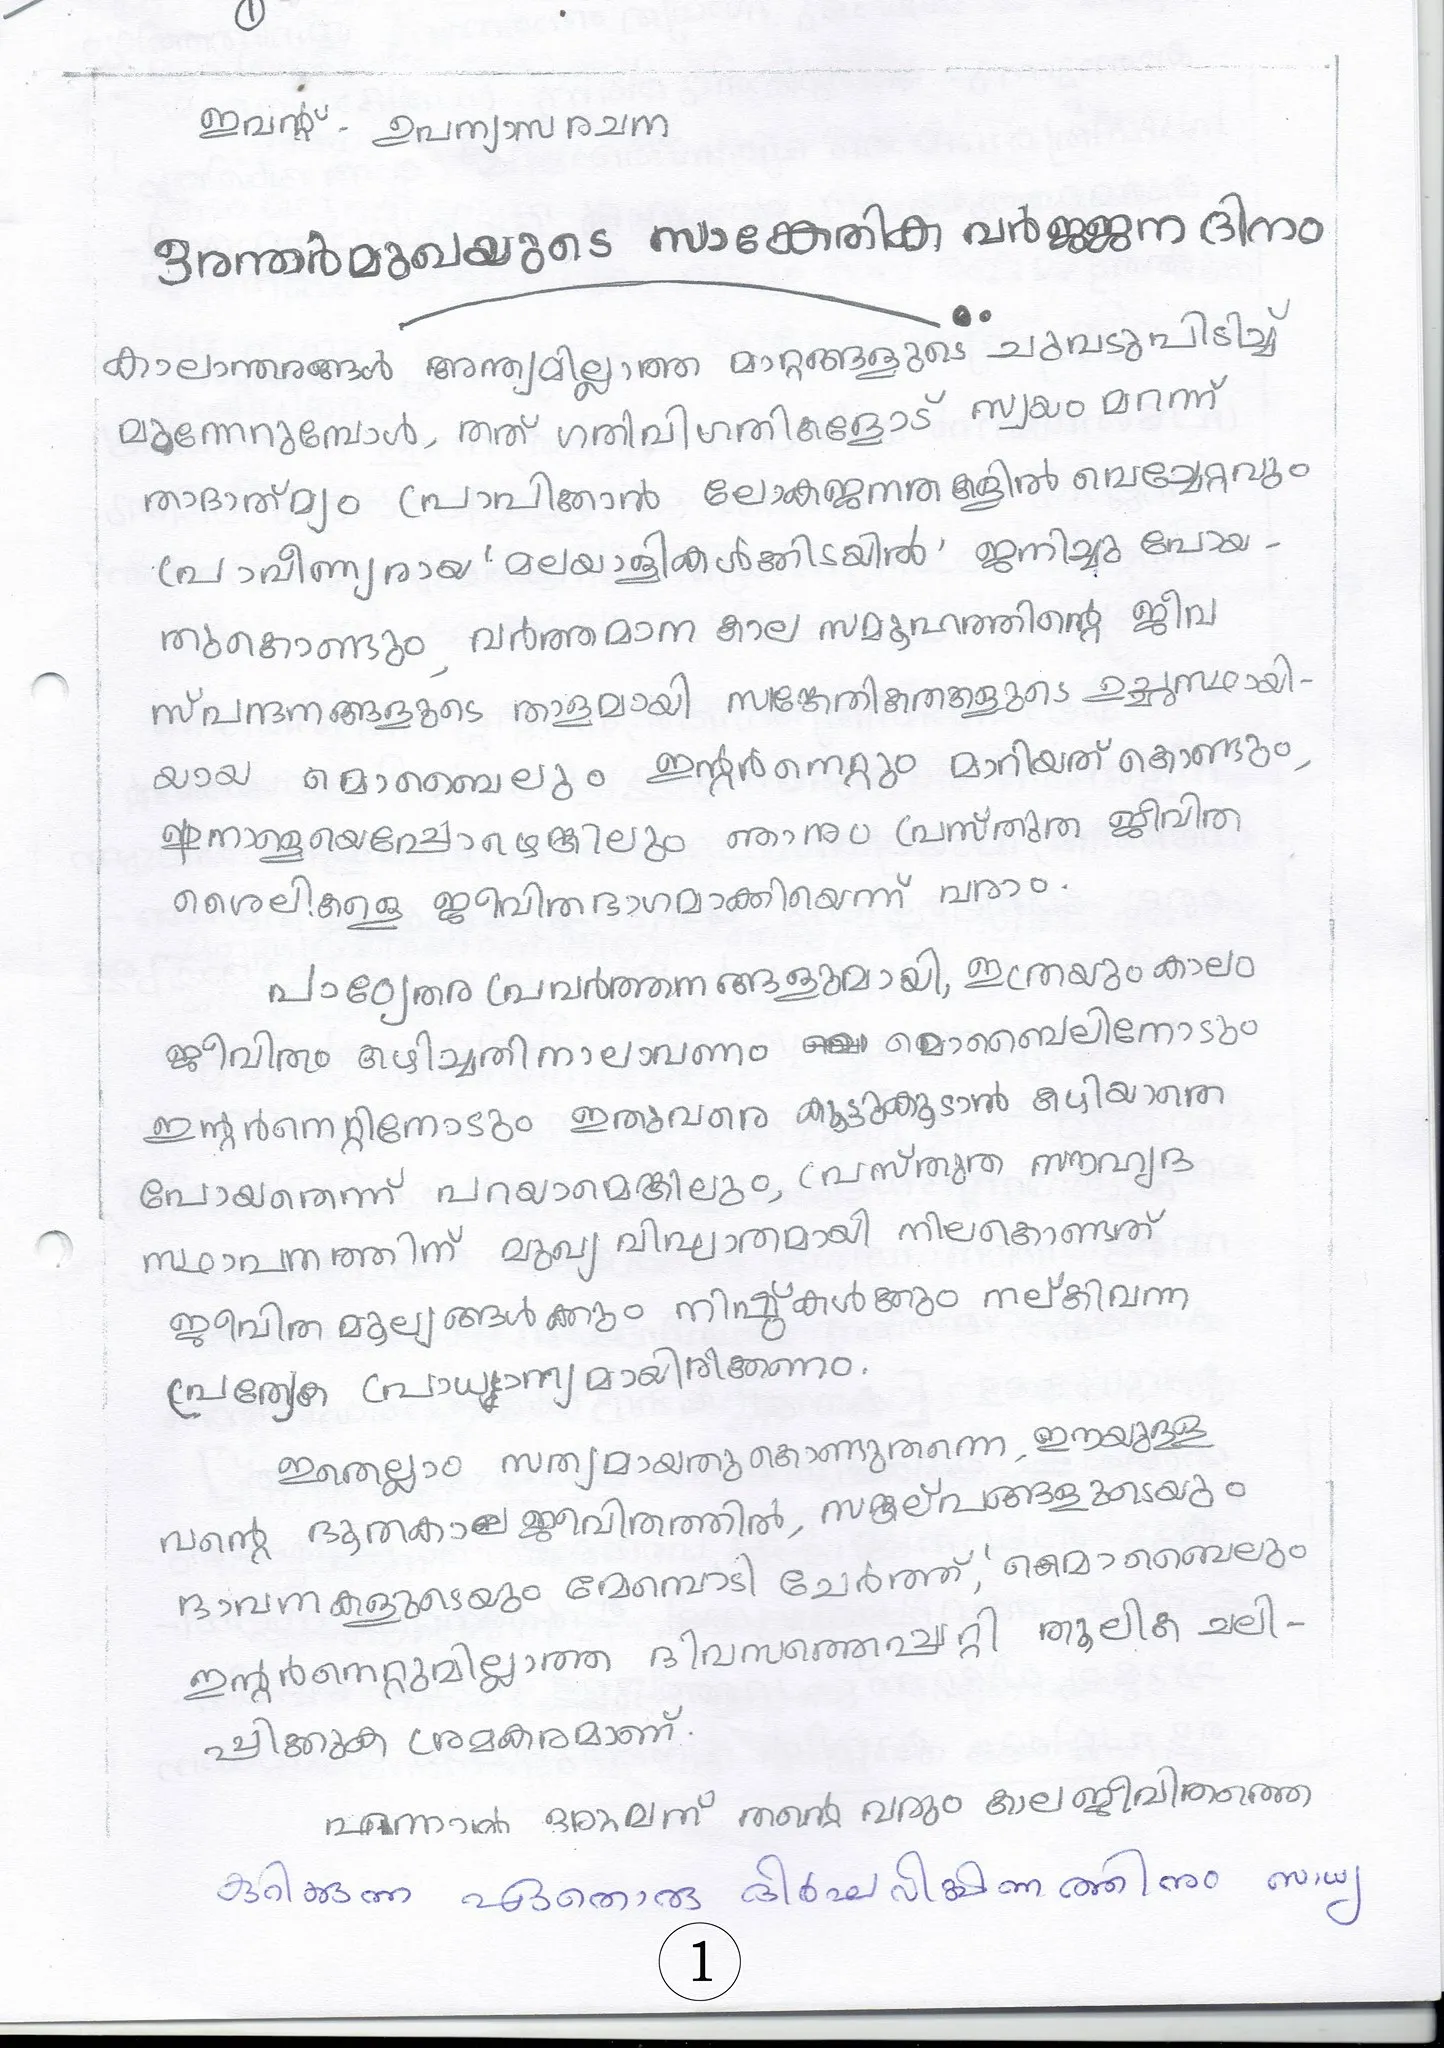 ①
ഇവന്റ് - ഉപന്യാസ രചന
അന്തർമുഖയുടെ സാങ്കേതിക വർജ്ജന ദിനം
കാലാന്തരങ്ങൾ അന്ത്യമില്ലാത്ത മാറ്റങ്ങളുടെ ചുവടുപിടിച്ച്
മുന്നേറുമ്പോൾ, തത് ഗതിവിഗതികളോട് സ്വയം മറന്ന്
താദാത്മ്യം പ്രാപിക്കാൻ ലോകജനതകളിൽ വെച്ചേറ്റവും
പ്രാവീണ്യരായ 'മലയാളികൾക്കിടയിൽ' ജനിച്ചു പോയ -
തുകൊണ്ടും, വർത്തമാന കാല സമൂഹത്തിന്റെ ജീവ
സ്പന്ദനങ്ങളുടെ താളമായി സങ്കേതികതകളുടെ ഉച്ചസ്ഥായി-
യായ മൊബൈലും ഇന്റർനെറ്റും മാറിയത് കൊണ്ടും,
ഇന്നാളെയെപ്പോഴെങ്കിലും ഞാനും പ്രസ്തുത ജീവിത
ശൈലികളെ ജീവിതഭാഗമാക്കിയെന്ന് വരാം.
പാഠ്യേതര പ്രവർത്തനങ്ങളുമായി, ഇത്രയും കാലം
ജീവിതം കഴിച്ചതിനാലാവണം മൊബൈലിനോടും
ഇന്റർനെറ്റിനോടും ഇതുവരെ കൂട്ടുകൂടാൻ കഴിയാതെ
പോയതെന്ന് പറയാമെങ്കിലും, പ്രസ്തുത സൗഹൃദ
സ്ഥാപനത്തിന് മുഖ്യ വിഘാതമായി നിലകൊണ്ടത്
ജീവിത മൂല്യങ്ങൾക്കും നിഷ്ഠകൾക്കും നല്കിവന്ന
പ്രത്യേക പ്രാധാന്യമായിരിക്കണം.
ഇതെല്ലാം സത്യമായതുകൊണ്ടുതന്നെ, ഈയുള്ള
വന്റെ ഭൂതകാല ജീവിതത്തിൽ, സങ്കല്പങ്ങളുടെയും
ഭാവനകളുടെയും മേമ്പൊടി ചേർത്ത്, 'മൊബൈലും
ഇന്റർനെറ്റുമില്ലാത്ത ദിവസത്തെപ്പറ്റി തൂലിക ചലി-
പ്പിക്കുക ശ്രമകരമാണ്.
എന്നാൽ ഒരുവന് തന്റെ വരും കാല ജീവിതത്തെ
കുറിക്കുന്ന ഏതൊരു ദീർഘവീക്ഷണത്തിനും സാധ്യ
1